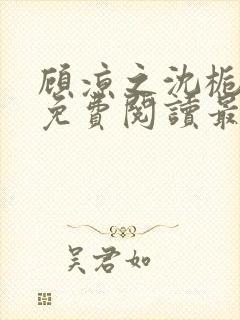 顾凉之沈栀
免費閱讀最
吴君如